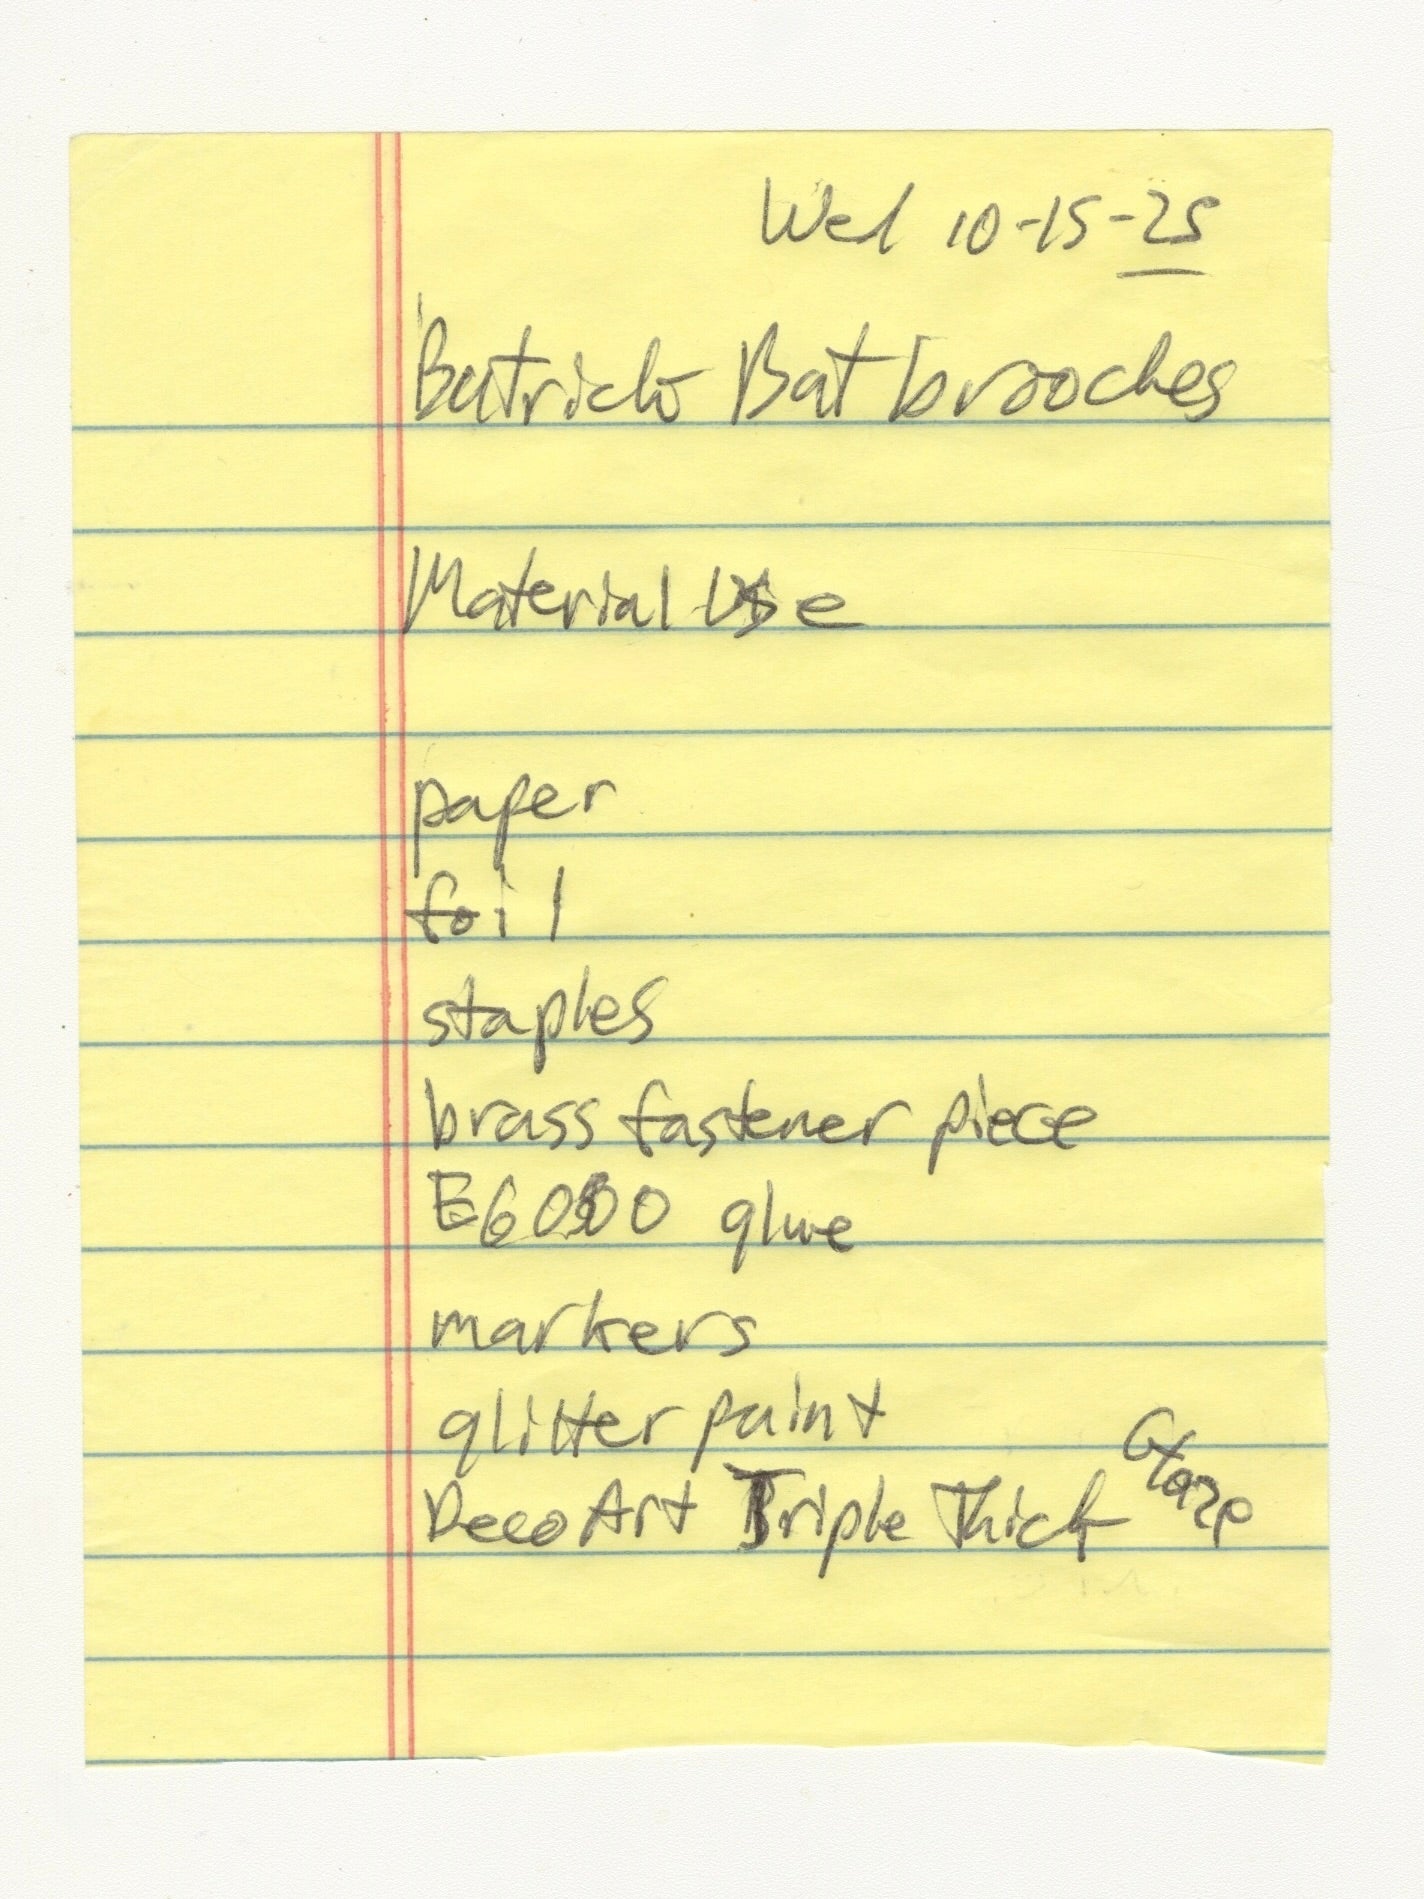 Wed 10-15-25
Batrick Bat brooches
Material Use
paper
foil
staples
brass fastener piece
E6000 glue
markers
glitter paint
DecoArt Triple Thick Glaze